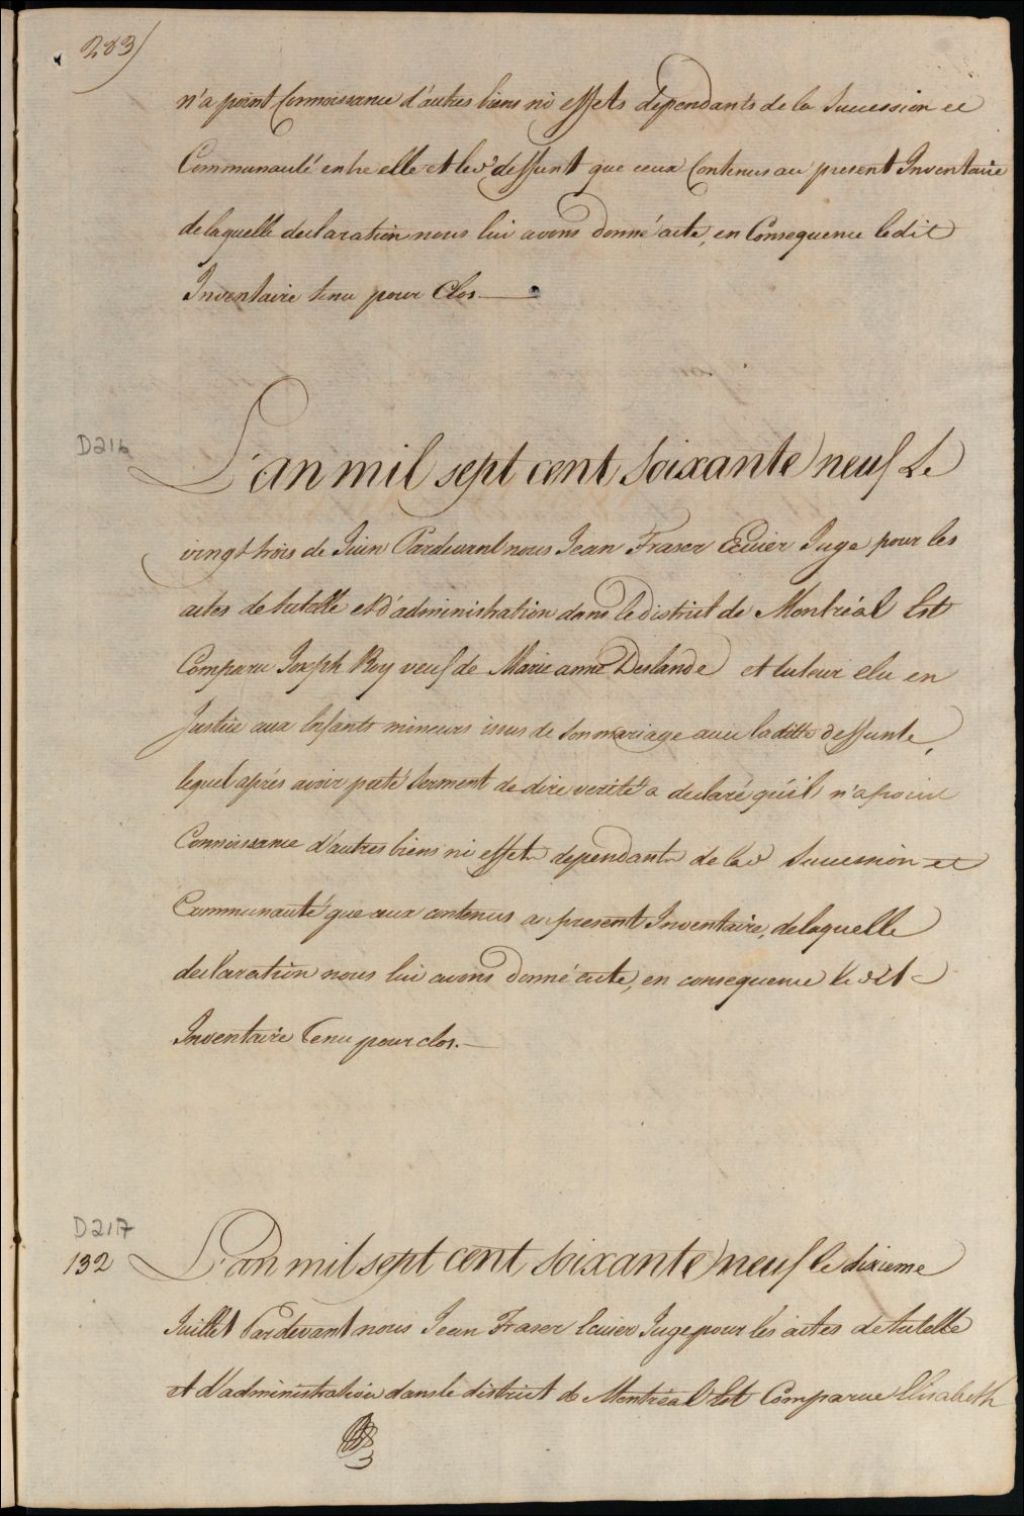 283)
n'a point Connoissance d'autres biens ni effets dependants de la Succession et
Communauté entre elle et led. deffunt que ceux Contenus au present Inventaire
de laquelle declaration nous lui avons donné acte, en Consequence ledit
Inventaire tenu pour Clos.
D216
L'an mil sept cent Soixante neuf Le
vingt trois de Juin Pardevant nous Jean Fraser Ecuier Juge pour les
actes de tutelle et d'administration dans le district de Montréal Est
Comparu Joseph Roy veuf de Marie anne Deslande et tuteur elu en
Justice aux Enfants mineurs issus de Son mariage avec la ditte deffunte,
lequel aprés avoir preté Serment de dire verité a declaré qu'il n'a point
Connoissance d'autres biens ni effets dependants de lad. Succession et
Communauté que ceux contenus au present Inventaire, de laquelle
declaration nous lui avons donné acte, en consequence le dit
Inventaire Tenu pour clos.
D217
132 L'an mil sept cent Soixante neuf le dixieme
Juillet Pardevant nous Jean Fraser Ecuier Juge pour les actes de tutelle
et d'administration dans le district de Montréal Est Comparue Elisabeth